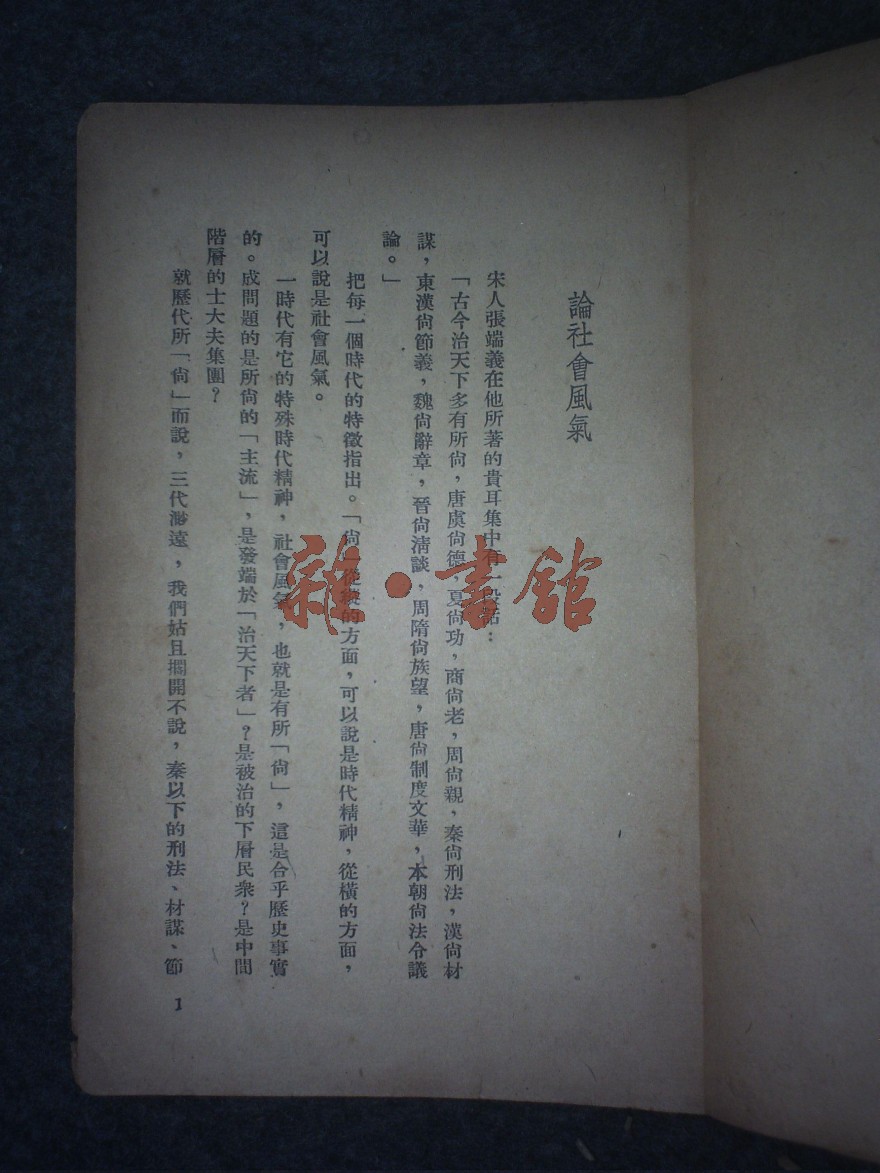 論社會風氣
宋人張端義在他所著的貴耳集中有一段話：
「古今治天下多有所尙，唐虞尙德，夏尙功，商尙老，周尙親，秦尙刑法，漢尙材
謀，東漢尙節義，魏尙辭章，晉尙淸談，周隋尙族望，唐尙制度文華，本朝尙法令議
論。」
把每一個時代的特徵指出。「尙」從縱的方面，可以說是時代精神，從橫的方面，
可以說是社會風氣。
一時代有它的特殊時代精神，社會風氣，也就是有所「尙」，這是合乎歷史事實
的。成問題的是所尙的「主流」，是發端於「治天下者」？是被治的下層民衆？是中間
階層的士大夫集團？
就歷代所「尙」而說，三代渺遠，我們姑且擱開不說，秦以下的刑法、材謀、節
1
雜·書館